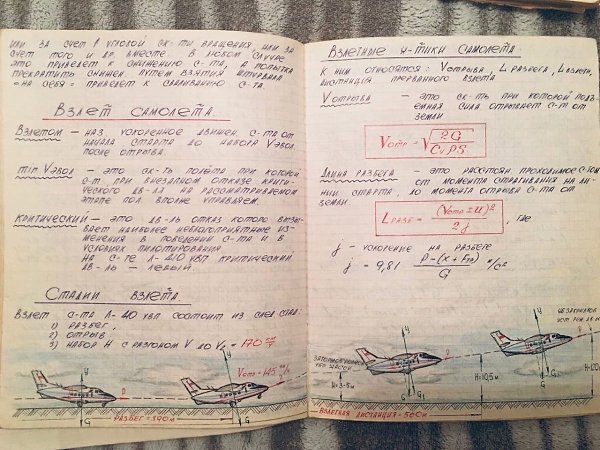 или за счет в угловой ск-ти вращения, или за
счет того и др. вместе. В любом случае
это приведет к снижению с-та, а попытка
прекратить снижен. путем взятия штурвала
«на себя» приведет к сваливанию с-та.
Взлет самолета.
Взлетом – наз ускоренное движен. с-та от
начала старта до набора Vэвол.
после отрыва.
min Vэвол – это ск-ть полета при которой
с-т при внезапном отказе крити-
ческого дв-ля на рассматриваемом
этапе пол. вполне управляем.
Критический – это дв-ль отказ которого вызы-
вает наиболее неблагоприятные из-
менения в поведении с-та и в
условиях пилотирования.
На с-те Л-410 увп критический
дв-ль – левый.
Стадии взлета.
Взлет с-та Л-410 увп состоит из след стад:
1) разбег;
2) отрыв;
3) набор H с разгоном V до V2 = 170
Vотр = 145
У
G
У
Р
G
Разбег = 390м
Взлетные х-тики самолета
К ним относятся: Vотрыва, L разбега, L взлета,
дистанция прерванного взлета
Vотрыва – это ск-ть при которой подъ-
емная сила отрывает с-т от
земли
Vотр = √2G / CyρS
Длина разбега – это расстоян проходимое с-том
от момента страгивания на ли-
нии старта, до момента отрыва с-та от
земли.
L разб = (Vотр ± u)² / 2j , где
j – ускорение на разбеге
j = 9,81 P – (x + Fтр) / G м/с²
H = 3-5м
У
G
H = 10,5м
У
G
Взлетная дистанция = 560м